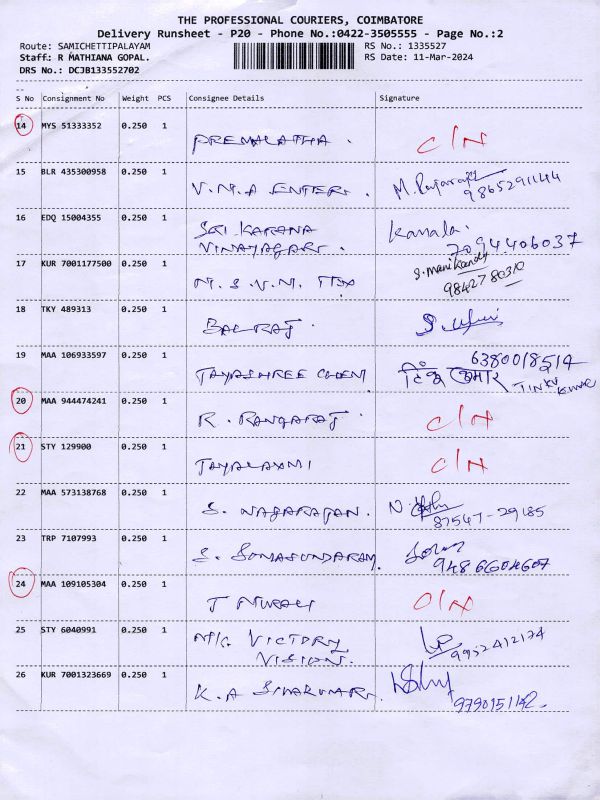 THE PROFESSIONAL COURIERS, COIMBATORE
Delivery Runsheet - P20 - Phone No.:0422-3505555 - Page No.:2
Route: SAMICHETTIPALAYAM RS No.: 1335527
Staff: R MATHIANA GOPAL. RS Date: 11-Mar-2024
DRS No.: DCJB133552702
S No Consignment No Weight PCS Consignee Details Signature
14 MYS 51333352 0.250 1 PREMALATHA . C/N
15 BLR 435300958 0.250 1 V.M.A ENTER.
9865291144
16 EDQ 15004355 0.250 1 SRI KARANA Kamala.
VINAYAGAR. 7094406037
17 KUR 7001177500 0.250 1 M.S.V.M. TEX S. Manikandy
9842780310
18 TKY 489313 0.250 1 BALRAJ.
19 MAA 106933597 0.250 1 JAYASHREE CHEM 6380018514
TINKU KUMAR
20 MAA 944474241 0.250 1 R. RANGARAJ C/N
21 STY 129900 0.250 1 JAYALAXMI C/N
22 MAA 573138768 0.250 1 S. NAGARAJAN.
87547-29185
23 TRP 7107993 0.250 1 S. SOMASUNDARAM
9486604607
24 MAA 109105304 0.250 1 T MURALI O/N
25 STY 6040991 0.250 1 M/S. VICTORY
VISION. 9952412124
26 KUR 7001323669 0.250 1 K.A SIVAKUMAR.
9790151142.